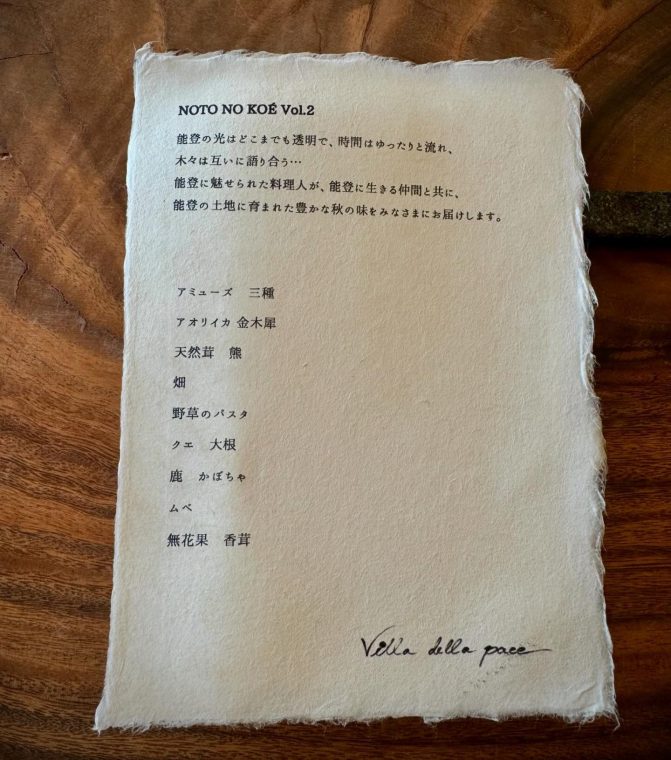 NOTO NO KOÉ Vol.2
能登の光はどこまでも透明で、時間はゆったりと流れ、
木々は互いに語り合う…
能登に魅せられた料理人が、能登に生きる仲間と共に、
能登の土地に育まれた豊かな秋の味をみなさまにお届けします。
アミューズ　三種
アオリイカ 金木犀
天然茸　熊
畑
野草のパスタ
クエ　大根
鹿　かぼちゃ
ムベ
無花果　香茸
Villa della pace